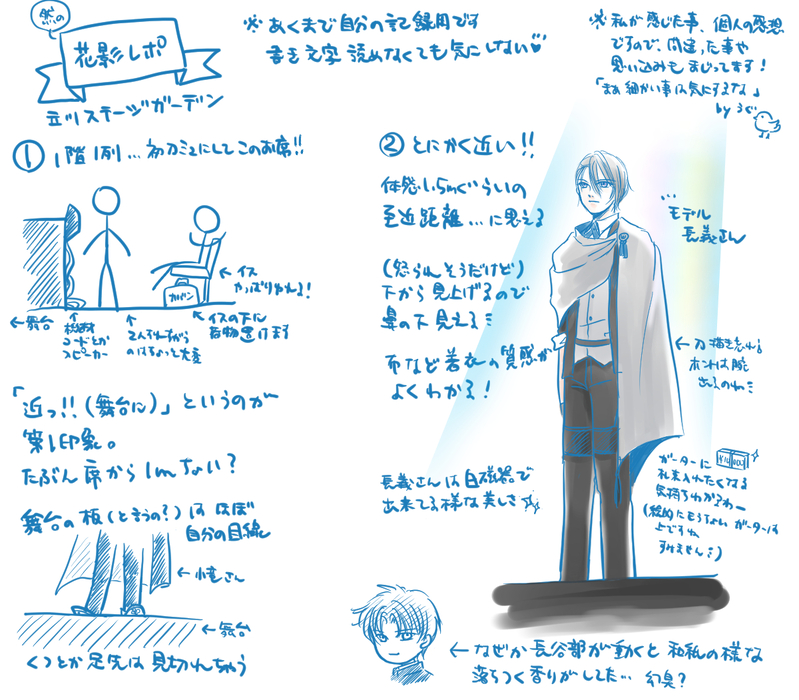 怒の
花影レポ
立川ステージガーデン
※ あくまで自分の記録用です
書き文字 読めなくても気にしない♡
※ 私が感じた事、個人の感想
ですので、間違った事や
思い込みも まじってます!
「まぁ細かい事は気にするな」
by うぐ
① 1階1列…初刀ミュにしてこのお席!!
← イス
やっぱりゆれる!
カバン
← 舞台
↑ 機材
コードとか
スピーカー
↑
人がすれちがう
のはちょっと大変
↑ イスの下に
荷物置けます
「近っ!!(舞台に)」というのが
第1印象。
たぶん席から1mちょい?
舞台の板(と言うの?)は ほぼ
自分の目線
← 小竜さん
← 舞台
くつとか足先は 見切れちゃう
② とにかく近い!!
体感1.5mぐらいの
至近距離…に思える
(怒られそうだけど)
下から見上げるので
鼻の下 見える
布など着衣の質感が
よくわかる!
長義さんは白磁器で
出来てる様な美しさ
モデル
長義さん
← 刀 描き忘れる
ホントは腕
出るのね
ガーターに
お札入れたくなる
気持ちわかるわー
上ですね
すみません
← なぜか長谷部が動くと 和紙の様な
落ちつく香りがしてた… 幻臭?